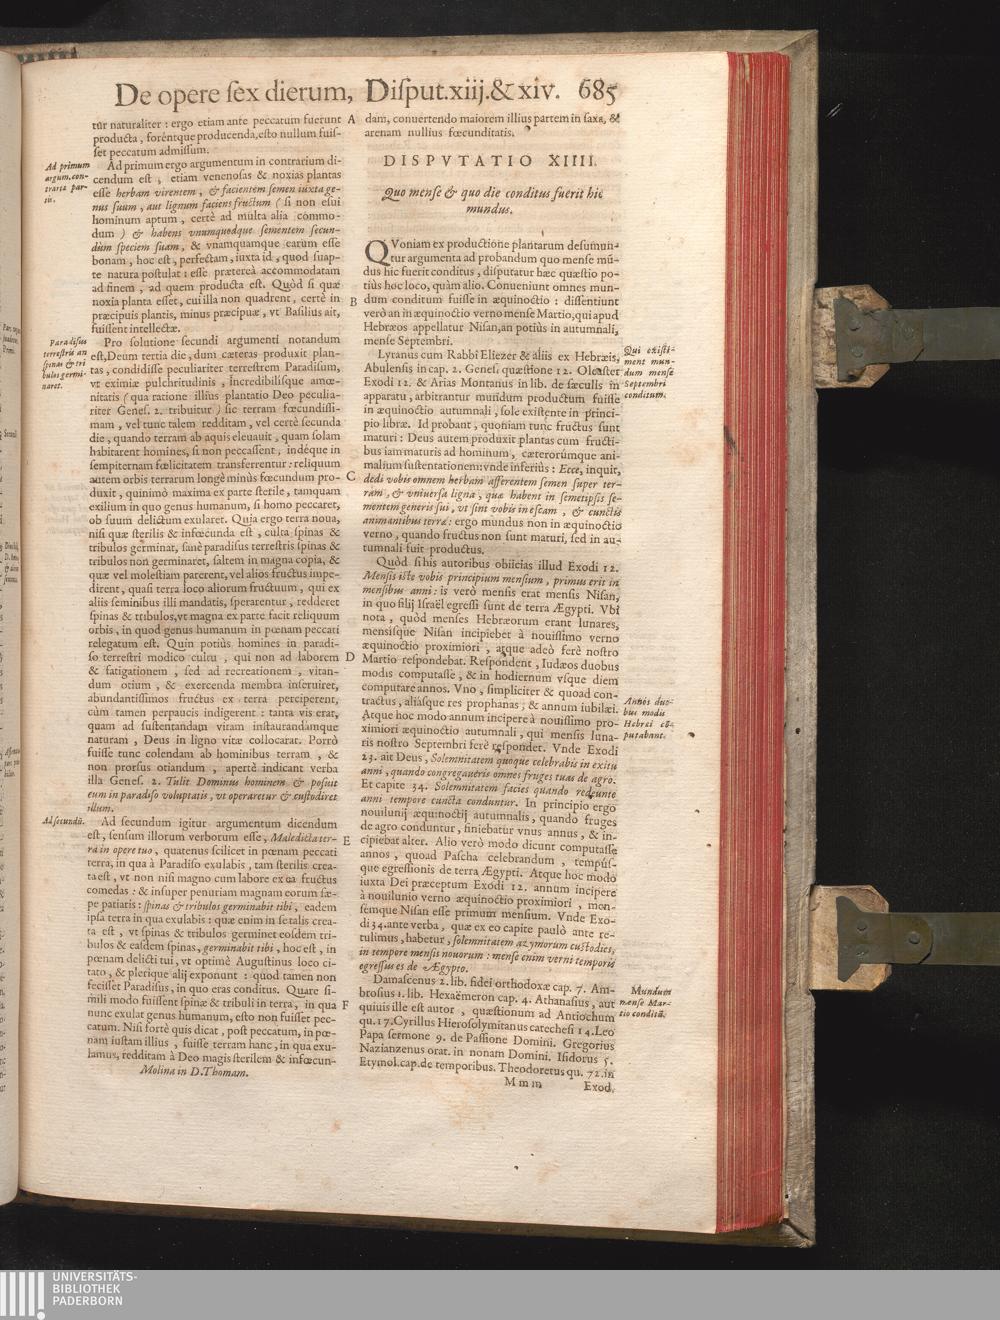 De opere ſex dierum, Diſput.xiij.&xiv. 685
tur naturaliter: ergo etiam ante peccatum fuerunt
producta, forentque producenda, eſto nullum fuiſ-
ſet peccatum admiſſum.
Ad primum
argum. con-
trariæ par-
tis.
Ad primum ergo argumentum in contrarium di-
cendum eſt, etiam venenoſas & noxias plantas
eſſe herbam virentem, & facientem ſemen iuxta ge-
nus ſuum, aut lignum faciens fructum (ſi non eſui
hominum aptum, certè ad multa alia commo-
dum) & habens vnumquodque ſementem ſecun-
dùm ſpeciem ſuam, & vnamquamque earum eſſe
bonam, hoc eſt, perfectam, iuxta id, quod ſuap-
te natura poſtulat: eſſe prætereà accommodatam
ad finem, ad quem producta eſt. Quòd ſi quæ
noxia planta eſſet, cui illa non quadrent, certè in
præcipuis plantis, minus præcipuæ, vt Baſilius ait,
fuiſſent intellectæ.
Paradiſus
terreſtris an
ſpinas & tri
bulos germi-
naret.
Pro ſolutione ſecundi argumenti notandum
eſt, Deum tertia die, dum cæteras produxit plan-
tas, condidiſſe peculiariter terreſtrem Paradiſum,
vt eximiæ pulchritudinis, incredibiliſque amœ-
nitatis (qua ratione illius plantatio Deo peculia-
riter Geneſ. 2. tribuitur) ſic terram fœcundiſſi-
mam, vel tunc talem redditam, vel certè ſecunda
die, quando terram ab aquis eleuauit, quam ſolam
habitarent homines, ſi non peccaſſent, indéque in
ſempiternam fœlicitatem transferrentur: reliquum
autem orbis terrarum longè minùs fœcundum pro-
duxit, quinimò maxima ex parte ſterile, tamquam
exilium in quo genus humanum, ſi homo peccaret,
ob ſuum delictum exularet. Quia ergo terra noua,
niſi quæ ſterilis & infœcunda eſt, culta ſpinas &
tribulos germinat, ſanè paradiſus terreſtris ſpinas &
tribulos non germinaret, ſaltem in magna copia, &
quæ vel moleſtiam parerent, vel alios fructus impe-
dirent, quaſi terra loco aliorum fructuum, qui ex
aliis ſeminibus illi mandatis, ſperarentur, redderet
ſpinas & tribulos, vt magna ex parte facit reliquum
orbis, in quod genus humanum in pœnam peccati
relegatum eſt. Quin potiùs homines in paradi-
ſo terreſtri modico cultu, qui non ad laborem
& fatigationem, ſed ad recreationem, vitan-
dum otium, & exercenda membra inſeruiret,
abundantiſſimos fructus ex terra perciperent,
cùm tamen perpaucis indigerent: tanta vis erat,
quam ad ſuſtentandam vitam inſtaurandamque
naturam, Deus in ligno vitæ collocarat. Porrò
fuiſſe tunc colendam ab hominibus terram, &
non prorſus otiandum, apertè indicant verba
illa Geneſ. 2. Tulit Dominus hominem & poſuit
eum in paradiſo voluptatis, vt operaretur & cuſtodiret
illum.
Ad ſecundū.
Ad ſecundum igitur argumentum dicendum
eſt, ſenſum illorum verborum eſſe, Maledicta ter-
ra in opere tuo, quatenus ſcilicet in pœnam peccati
terra, in qua à Paradiſo exulabis, tam ſterilis crea-
ta eſt, vt non niſi magno cum labore ex ea fructus
comedas: & inſuper penuriam magnam eorum ſæ-
pe patiaris: ſpinas & tribulos germinabit tibi, eadem
ipſa terra in qua exulabis: quæ enim in ſe talis crea-
ta eſt, vt ſpinas & tribulos germinet eoſdem tri-
bulos & eaſdem ſpinas, germinabit tibi, hoc eſt, in
pœnam delicti tui, vt optimè Auguſtinus loco ci-
tato, & plerique alij exponunt: quod tamen non
feciſſet Paradiſus, in quo eras conditus. Quare ſi-
mili modo fuiſſent ſpinæ & tribuli in terra, in qua
nunc exulat genus humanum, eſto non fuiſſet pec-
catum. Niſi fortè quis dicat, poſt peccatum, in pœ-
nam iuſtam illius, fuiſſe terram hanc, in qua exu-
lamus, redditam à Deo magis ſterilem & infœcun-
Molina in D. Thomam.
A
B
C
D
E
F
dam, conuertendo maiorem illius partem in ſaxa, &
arenam nullius fœcunditatis.
DISPVTATIO XIIII.
Quo menſe & quo die conditus fuerit hic
mundus.
QVoniam ex productione plantarum deſumun-
tur argumenta ad probandum quo menſe mū-
dus hic fuerit conditus, diſputatur hæc quæſtio po-
tiùs hoc loco, quàm alio. Conueniunt omnes mun-
dum conditum fuiſſe in æquinoctio: diſſentiunt
verò an in æquinoctio verno menſe Martio, qui apud
Hebræos appellatur Niſan, an potiùs in autumnali,
menſe Septembri.
Qui exiſti-
ment mun-
dum menſe
Septembri
conditum.
Lyranus cum Rabbi Eliezer & aliis ex Hebræis,
Abulenſis in cap. 2. Geneſ. quæſtione 12. Oleaſter
Exodi 12. & Arias Montanus in lib. de ſæculis in
apparatu, arbitrantur mundum productum fuiſſe
in æquinoctio autumnali, ſole exiſtente in princi-
pio libræ. Id probant, quoniam tunc fructus ſunt
maturi: Deus autem produxit plantas cum fructi-
bus iam maturis ad hominum, cæterorúmque ani-
malium ſuſtentationem: vnde inferiùs: Ecce, inquit,
dedi vobis omnem herbam afferentem ſemen ſuper ter-
ram, & vniuerſa ligna, quæ habent in ſemetipſis ſe-
mentem generis ſui, vt ſint vobis in eſcam, & cunctis
animantibus terræ: ergo mundus non in æquinoctio
verno, quando fructus non ſunt maturi, ſed in au-
tumnali fuit productus.
Quòd ſi his autoribus obiicias illud Exodi 12.
Menſis iſte vobis principium menſium, primus erit in
menſibus anni: is verò menſis erat menſis Niſan,
in quo filij Iſraël egreſſi ſunt de terra Ægypti. Vbi
nota, quòd menſes Hebræorum erant lunares,
menſiſque Niſan incipiebat à nouiſſimo verno
æquinoctio proximiori, atque adeò ferè noſtro
Martio reſpondebat. Reſpondent, Iudæos duobus
modis computaſſe, & in hodiernum vſque diem
computare annos. Vno, ſimpliciter & quoad con-
tractus, aliáſque res prophanas, & annum iubilæi.
Atque hoc modo annum incipere à nouiſſimo pro-
ximiori æquinoctio autumnali, qui menſis luna-
ris noſtro Septembri ferè reſpondet. Vnde Exodi
23. ait Deus, Solemnitatem quoque celebrabis in exitu
anni, quando congregaueris omnes fruges tuas de agro.
Et capite 34. Solemnitatem facies quando redeunte
anni tempore cuncta conduntur. In principio ergo
nouilunij æquinoctij autumnalis, quandò fruges
de agro conduntur, finiebatur vnus annus, & in-
cipiebat alter. Alio verò modo dicunt computaſſe
annos, quoad Paſcha celebrandum, tempúſ-
que egreſſionis de terra Ægypti. Atque hoc modo
iuxta Dei præceptum Exodi 12. annum incipere
à nouilunio verno æquinoctio proximiori, mon-
ſemque Niſan eſſe primum menſium. Vnde Exo-
di 34. ante verba, quæ ex eo capite paulò ante re-
tulimus, habetur, ſolemnitatem azymorum cuſtodies,
in tempore menſis nouorum: menſe enim verni temporis
egreſſus es de Ægypto.
Annos duo-
bus modis
Hebræi cō-
putabant.
Mundum
menſe Mar-
tio conditū.
Damaſcenus 2. lib. fidei orthodoxæ cap. 7. Am-
broſius 1. lib. Hexaëmeron cap. 4. Athanaſius, aut
quiuis ille eſt autor, quæſtionum ad Antiochum
qu. 17. Cyrillus Hieroſolymitanus catecheſi 14. Leo
Papa ſermone 9. de Paſſione Domini. Gregorius
Nazianzenus orat. in nonam Domini. Iſidorus 5.
Etymol. cap. de temporibus. Theodoretus qu. 72. in
Mmm Exod.
UNIVERSITÄTS-
BIBLIOTHEK
PADERBORN